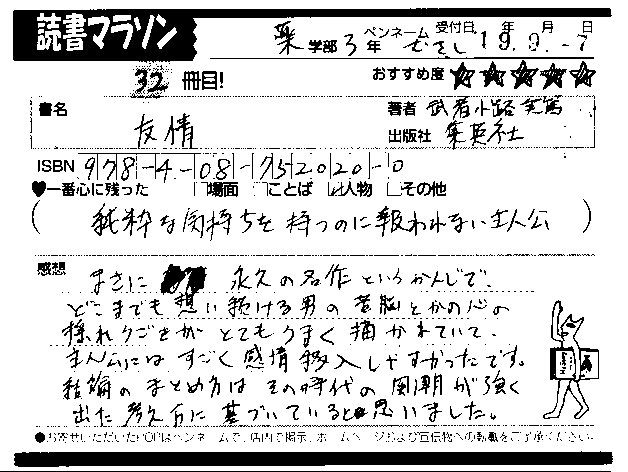 読書マラソン
薬学部 3年 ペンネーム むさし 受付日 19年 9月 -7日
32冊目!
おすすめ度 ★★★★★
書名 友情
著者 武者小路実篤
出版社 集英社
ISBN 978-4-08-752020-0
♥一番心に残った □場面 □ことば ☑人物 □その他
(純粋な気持ちを持つのに報われない主人公)
感想
まさに 永久の名作というかんじで、
どこまでも想い続ける男の苦脳とかの心の
揺れうごきがとてもうまく描かれていて、
主人公にはすごく感情移入しやすかったです。
結論のまとめ方はその時代の風潮が強く
出た考え方に基づいていると思いました。
●お寄せいただいたPOPはペンネームで、店内で掲示、ホームページおよび宣伝物への転載をご了承ください。